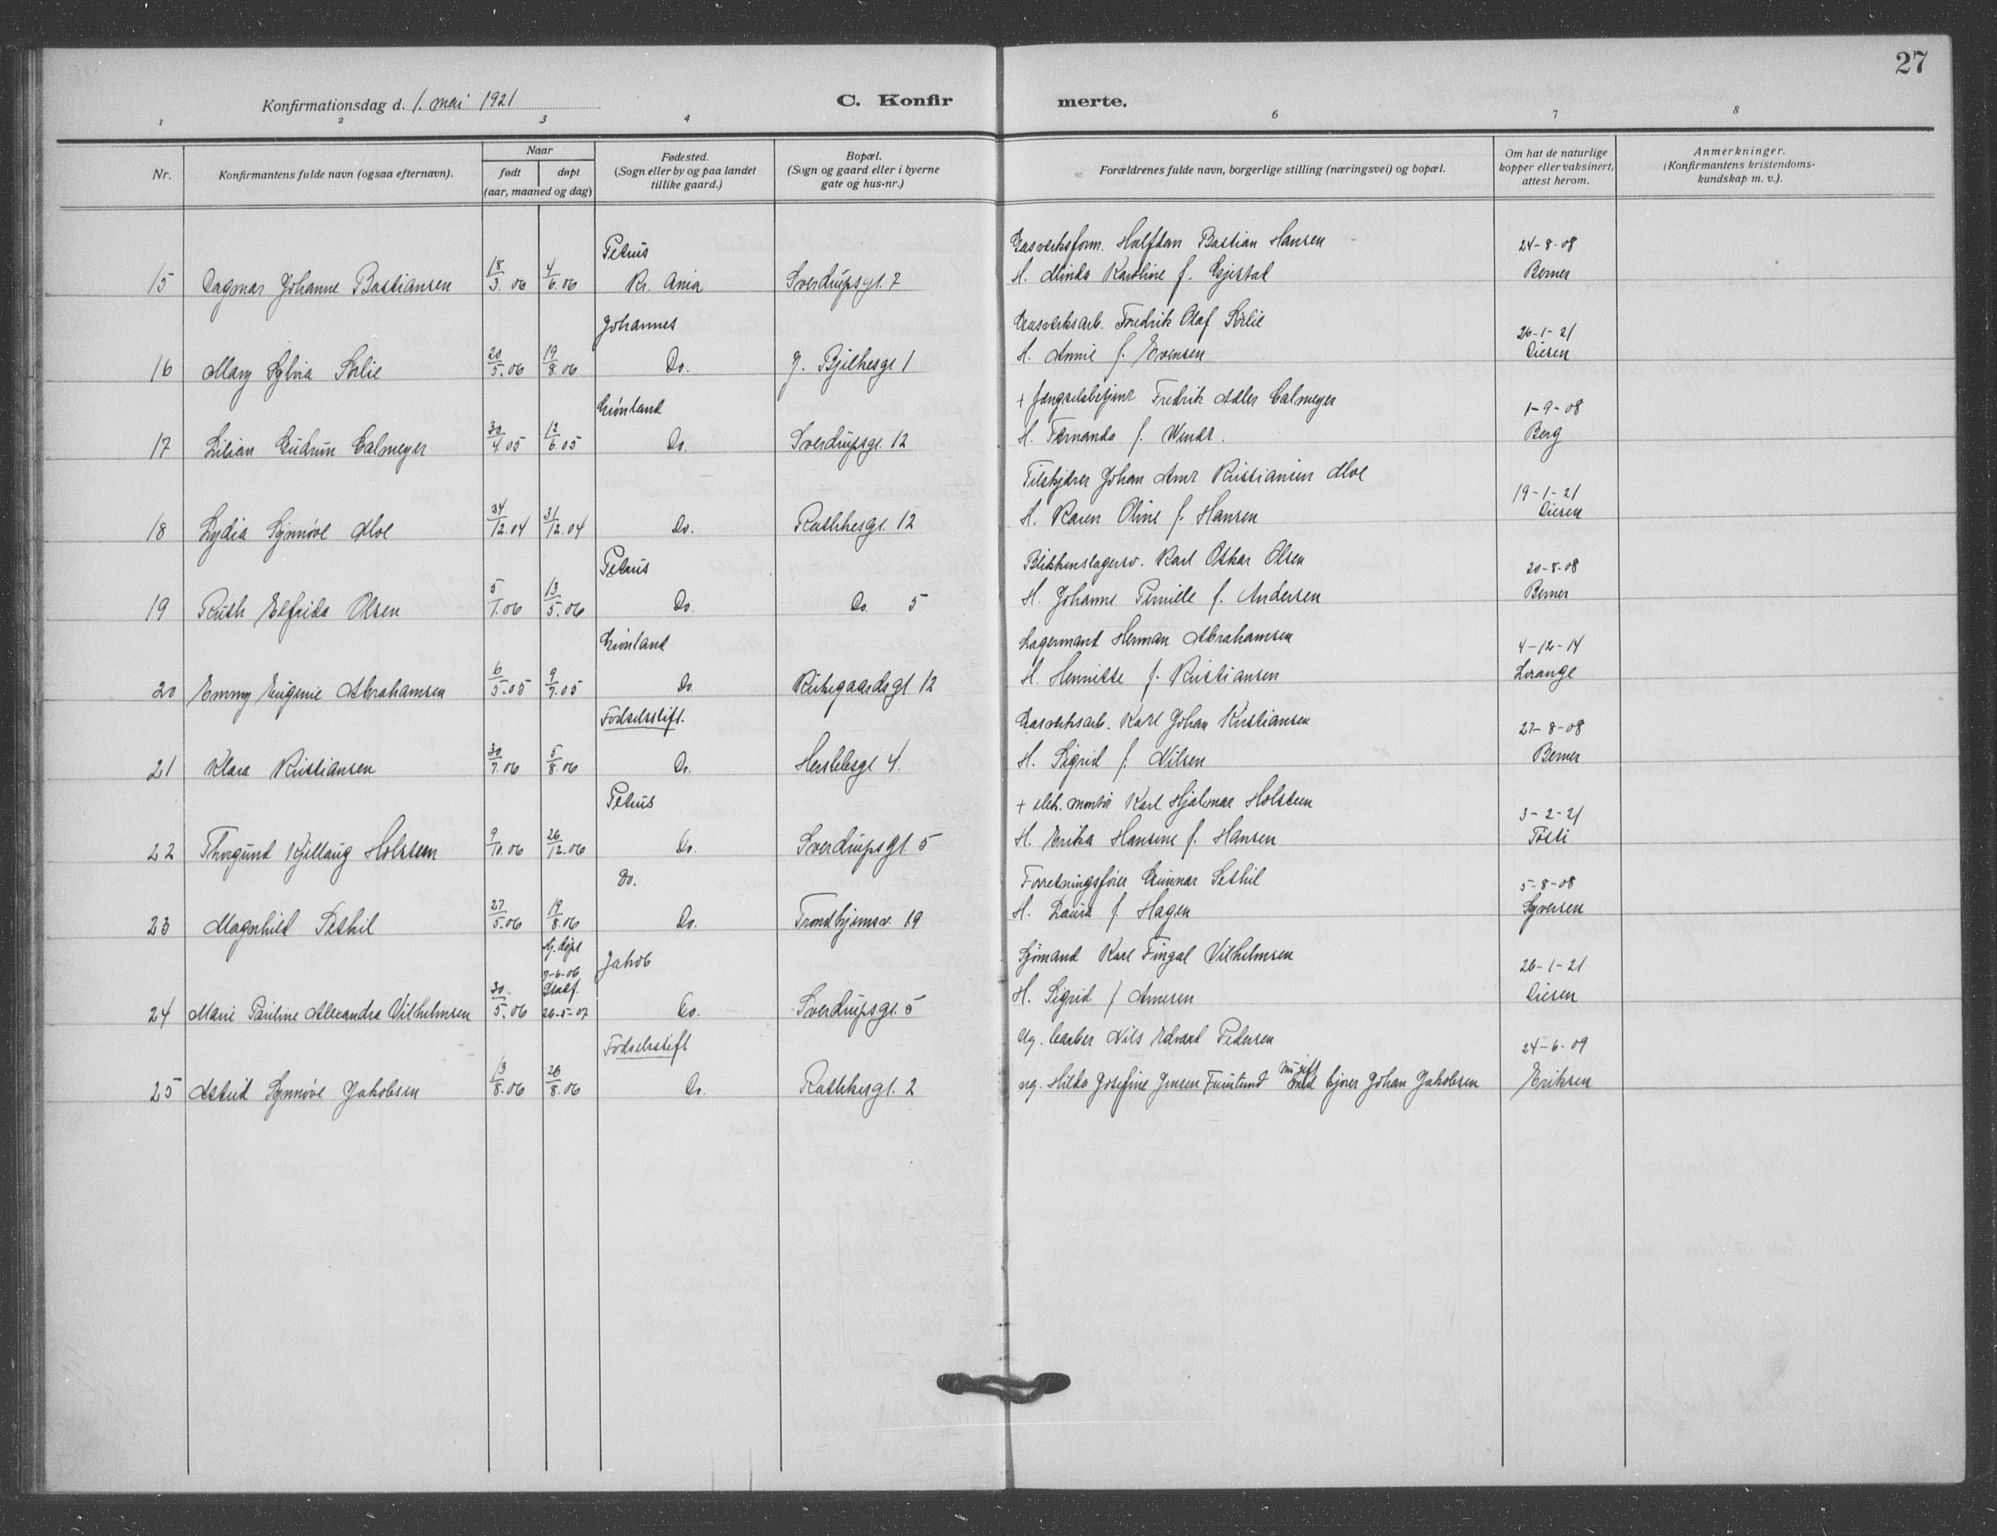 27
Konfirmationsdag d. 1. mai 1921
C. Konfir merte.
1 2 3 4 6 7 8
Nr.
Konfirmantens fulde navn (ogsaa efternavn).
Naar
født døpt
(aar, maaned og dag)
Fødested.
(Sogn eller by og paa landet
tillike gaard.)
Bopæl.
(Sogn og gaard eller i byerne
gate og hus-nr.)
Forældrenes fulde navn, borgerlige stilling (næringsvei) og bopæl.
Om hat de naturlige
kopper eller vaksinert,
attest herom.
Anmerkninger.
(Konfirmantens kristendoms-
kundskap m. v.).
Petrus Gasverksform. Halfdan Bastian Hansen 24-8-08
15 Dagmar Johanne Bastiansen 18/3.06 4/6.06 Kr.ania Sverdrupsgt. 7 H. Minda Karoline f. Gjestad Berner
Johannes Gasverksarb. Fredrik Olaf Sørlie 26-1-21
16 Mary Sylvia Sørlie 20/5.06 19/8.06 Do. J. Bjelkesgt 1 H. Annie f. Evensen Diesen
Grønland + Fængselsbetjent Fredrik Adler Calmeyer 1-9-08
17 Lilian Gudrun Calmeyer 30/4.05 12/6.05 Do. Sverdrupsgt. 12 H. Fernanda f. Wendt. Berg
Tilskjærer Johan Amt Kristiansen Moe 19-1-21
18 Lydia Synnøve Moe /12.04 31/12.04 Do. Rathkesgt. 12 H. Karen Oline f. Hansen Diesen
Petrus Blikkenslagersv. Karl Oskar Olsen 20-8-08
19 Ruth Elfrida Olsen 5/1.06 13/5.06 Do. Do. 5 H. Johanne Pernille f. Andersen Berner
Grønland Lagermand Herman Abrahamsen 4-12-14
20 Emmy Eugenie Abrahamsen 6/5.05 9/7.05 Do. Kirkegaardsgt 12 H. Henriette f. Kristiansen Lorange
Fødselsstift. Gasverksarb. Karl Johan Kristiansen 27-8-08
21 Klara Kristiansen 30/7.06 5/8.06 Do. Herslebsgt 4. H. Sigrid f. Nilsen Berner
Petrus + elek. montør Karl Hjalmar Holsteen 3-2-21
22 Thorgund Kjellaug Holsteen 9/10.06 26/12.06 Do. Sverdrupsgt 5 H. Erika Hansine f. Hansen Tosti
Do. Forretningsfører Gunnar Sethil 5-8-08
23 Magnhild Sethil 27/5.06 19/8.06 Do. Trondhjemsv. 19 H. Laura f. Hagen Syversen
Hj.døpt Jakob Sjømand Karl Fingal Vilhelmsen 26-1-21
7-6-06
Stadf.
24 Marie Pauline Alexandra Vilhelmsen 30/5.06 26-5-07 Do. Sverdrupsgt. 5 H. Sigrid f Arnesen Diesen
Fødselsstift Ug. barber Nils Edvard Pedersen 24-6-09
25 Astrid Synnøve Jakobsen 13/8.06 26/8.06 Do. Rathkesgt. 2 ug. Hilda Josefine Jensen Furulund nu gift med kjører Johan Jakobsen Eriksen